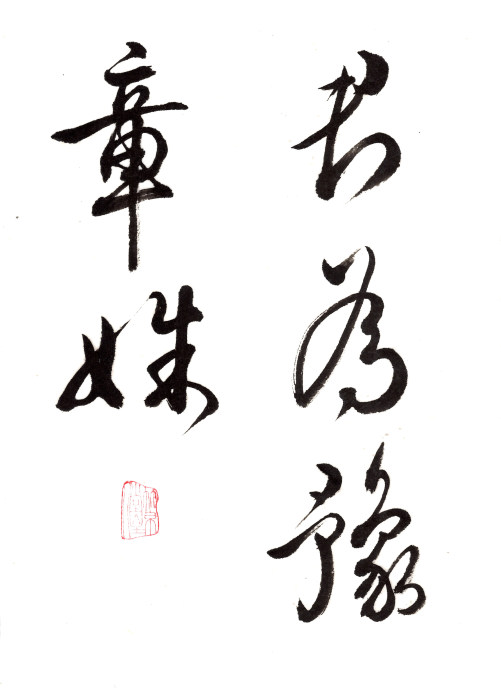 君為豫
章姝